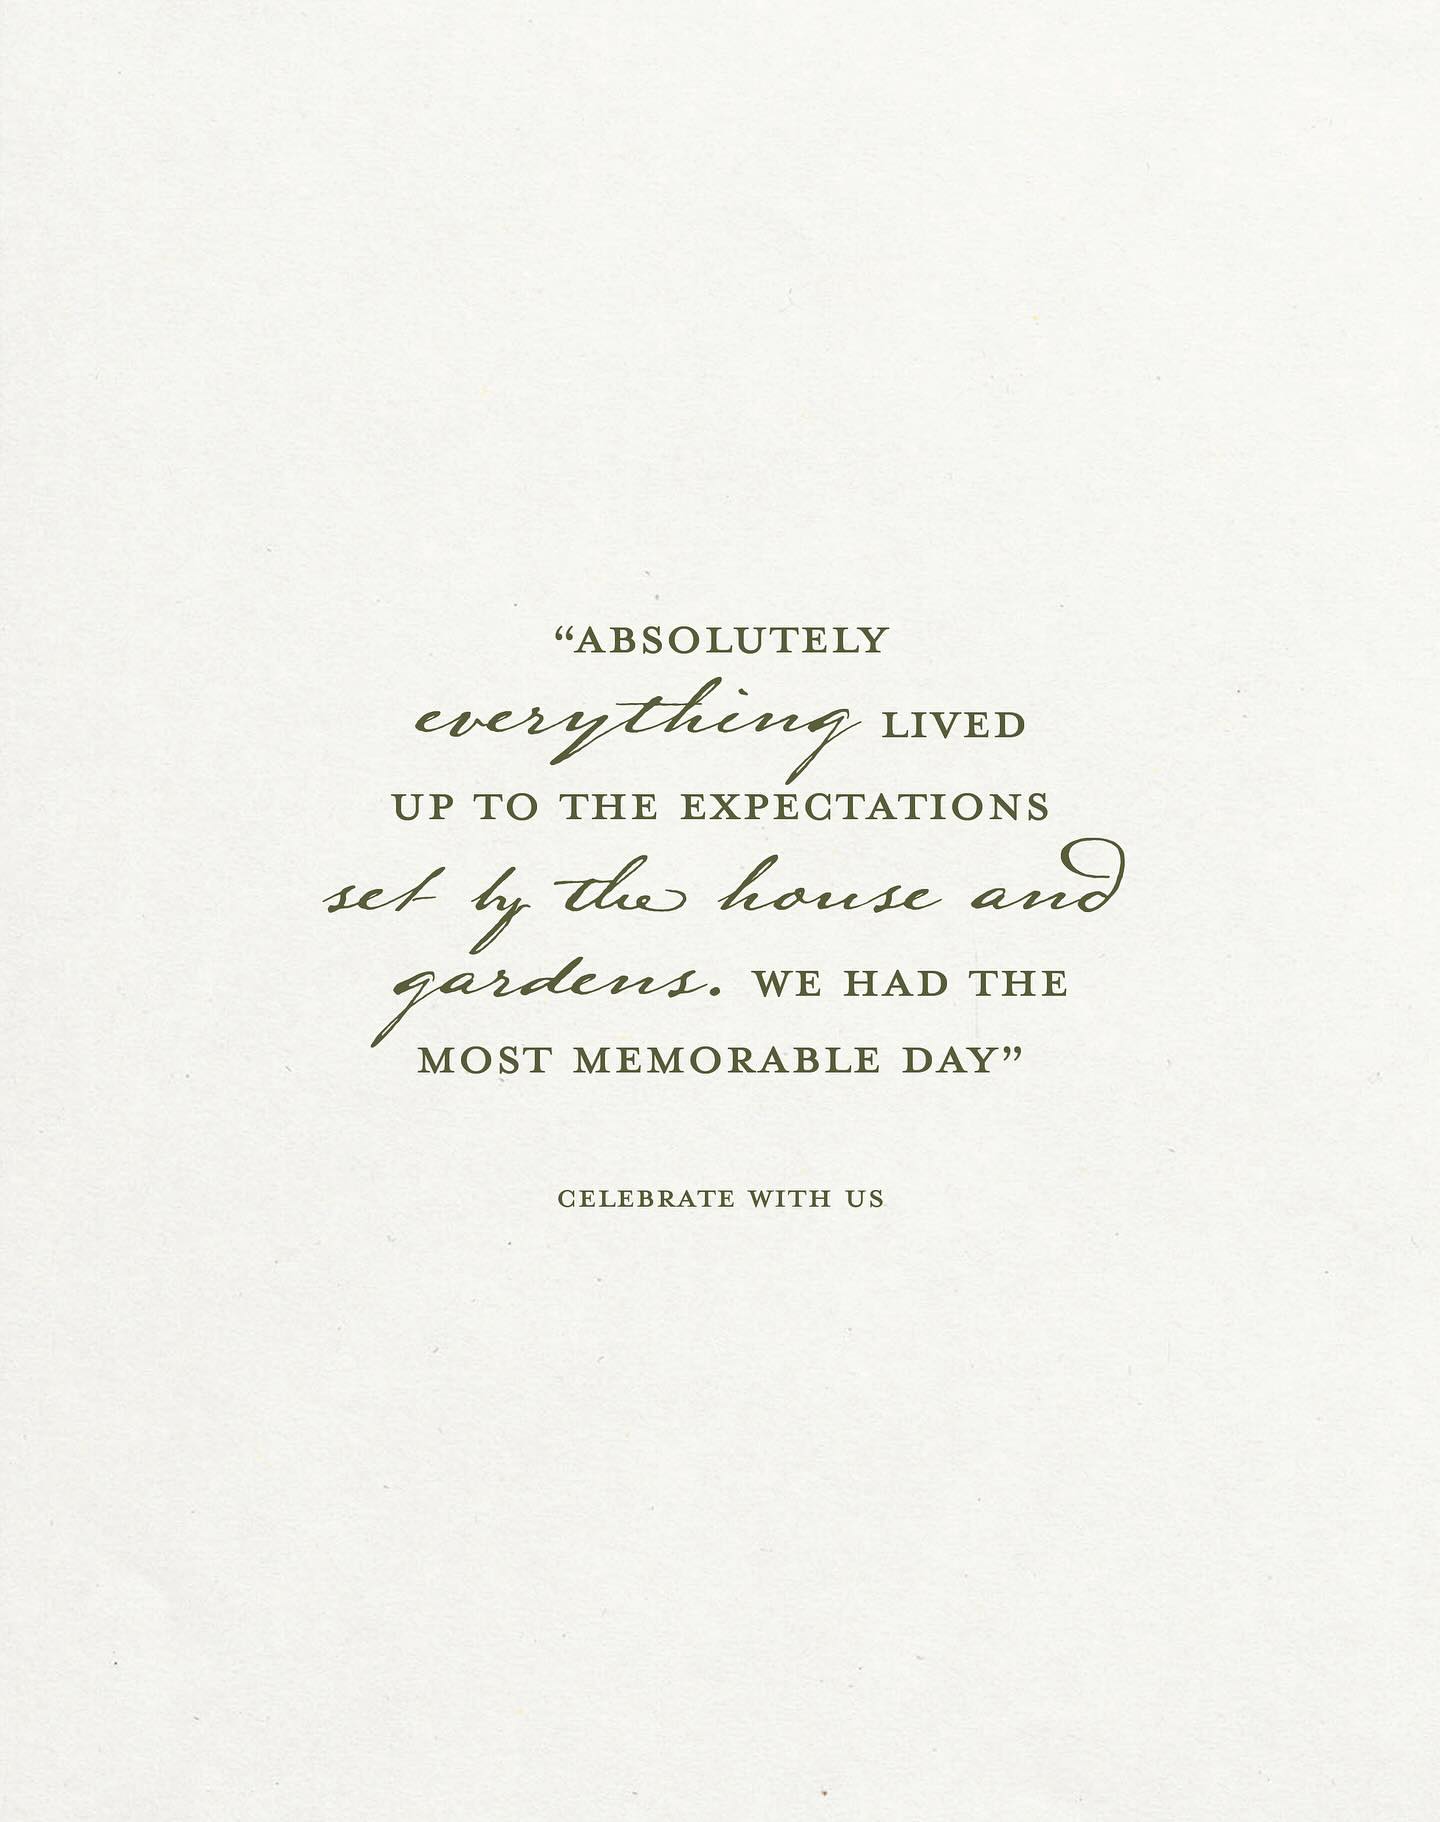 “ABSOLUTELY
everything LIVED
UP TO THE EXPECTATIONS
set by the house and
gardens. WE HAD THE
MOST MEMORABLE DAY”
CELEBRATE WITH US